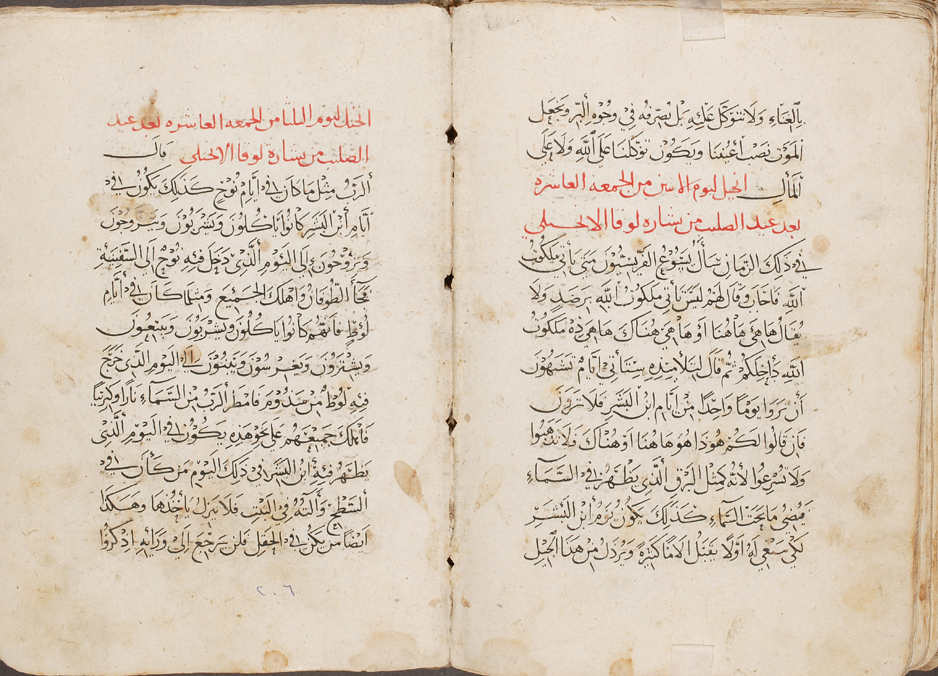 بالغناء ولا نتوكل عليه بل نصرفه في وجوه البر ونجعل
الموت نصب اعيننا ويكون توكلنا على الله ولا على
المال انجيل ليوم الاثنين من الجمعه العاشره
بعد عيد الصليب من بشاره لوقا الانجيلي
في ذلك الزمان سأل يسوع الفريسيون متى يأتي ملكوت
الله فاجاب وقال لهم ليس يأتي ملكوت الله برصد ولا
يقال ها هي هاهنا او ها هي هناك ها هي ذه ملكوت
الله داخلكم ثم قال لتلاميذه ستأتي ايام تشتهون
أن تروا يوما واحدا من ايام ابن البشر فلا ترون
فان قالوا لكم هوذا هو هاهنا او هناك فلا تذهبوا
ولا تسرعوا لأنه كمثل البرق الذي يظهر في السماء
فيضي ما تحت السماء كذلك يكون يوم أبن البشر
لكن ينبغي له اولا يقبل الاما كثيرة ويرذل من هذا الجيل
انجيل ليوم الثلثا من الجمعه العاشره بعد عيد
الصليب من بشاره لوقا الانجيلي قال
الرب مثل ما كان في ايام نوح كذلك يكون في
ايام أبن البشر كانوا ياكلون ويشربون ويتزوجون
ويزوجون الى اليوم الذي دخل فيه نوح الى السفينة
فجأ الطوفان واهلك الجميع ومثلما كان في أيام
لوط فانهم كانوا ياكلون ويشربون ويبتعون
ويشترون ويغرسون ويبنون في اليوم الذي خرج
فيه لوط من سدوم فامطر الرب من السماء نارا وكبريتا
فاهلك جميعهم على نحو هذه يكون في اليوم الذي
يظهر فيه ابن البشر في ذلك اليوم من كان في
السطح وآلته في البيت فلا ينزل ياخذها وهكذا
ايضا من يكن في الحقل فلن يرجع الى ورائه اذكروا
٢٠٦